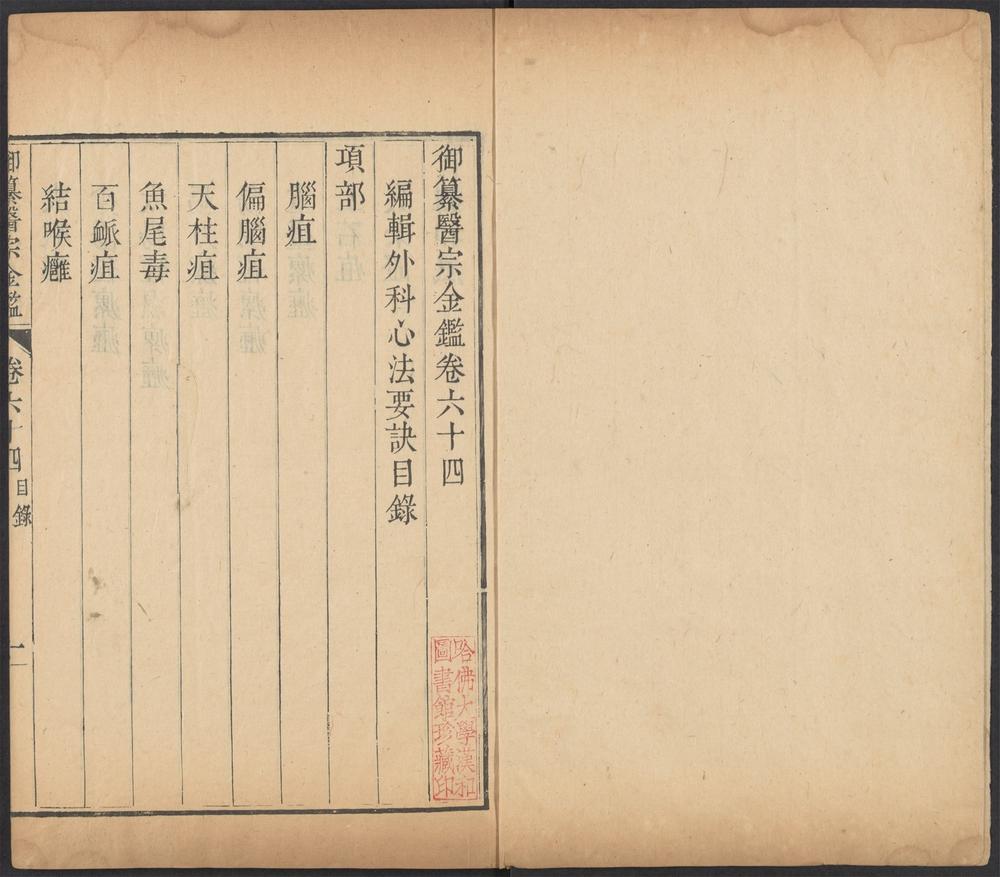 御纂醫宗金鑑卷六十四
編輯外科心法要訣目錄
項部
腦疽
偏腦疽
天柱疽
魚尾毒
百衇疽
結喉癰
御纂醫宗金鑑 卷六十四 目錄 一
哈佛大學漢和
圖書館珍藏印